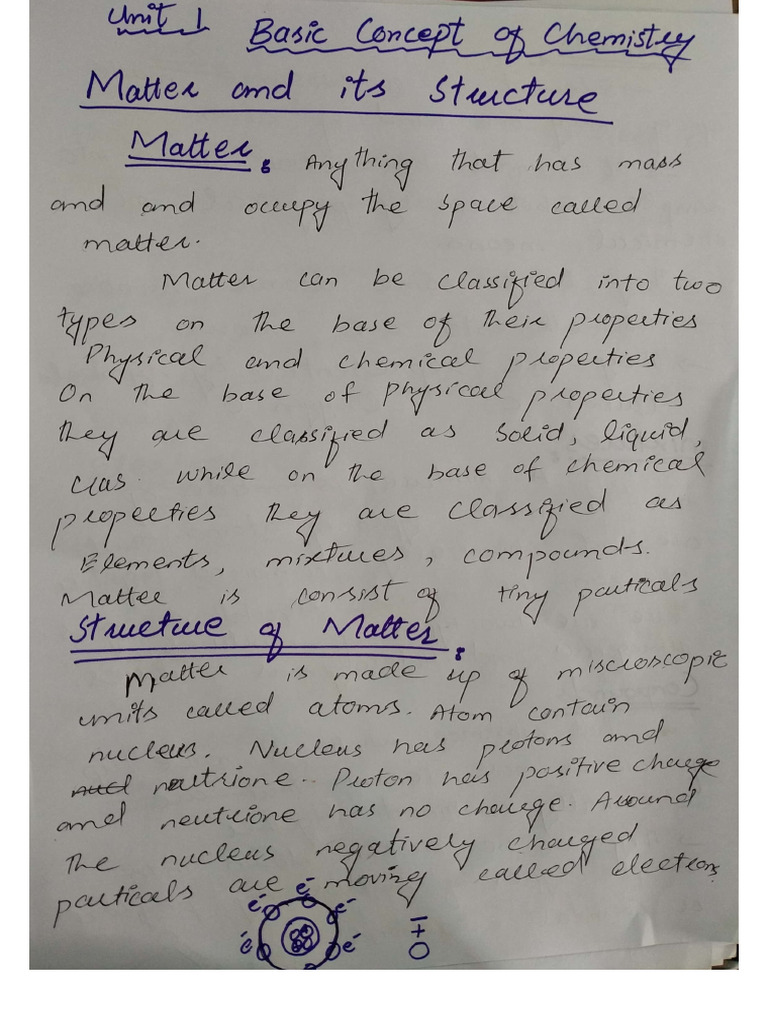 Unit 1 Basic Concept of Chemistry
Matter and its Structure
Matter: Anything that has mass
and and occupy the space called
matter.
Matter can be classified into two
types on the base of their properties
Physical and chemical properties
On the base of physical properties
they are classified as solid, liquid,
Gas. while on the base of chemical
properties they are classified as
Elements, mixtures, compounds.
Matter is consist of tiny particals
Structure of Matter:
Matter is made up of miscroscopic
units called atoms. Atom contain
nucleus. Nucleus has protons and
neutrione. Proton has positive charge
and neutrione has no charge. Around
the nucleus negatively charged
particals are moving called electrons
e⁻ e⁻ e⁻
e⁻ e⁻
− + O